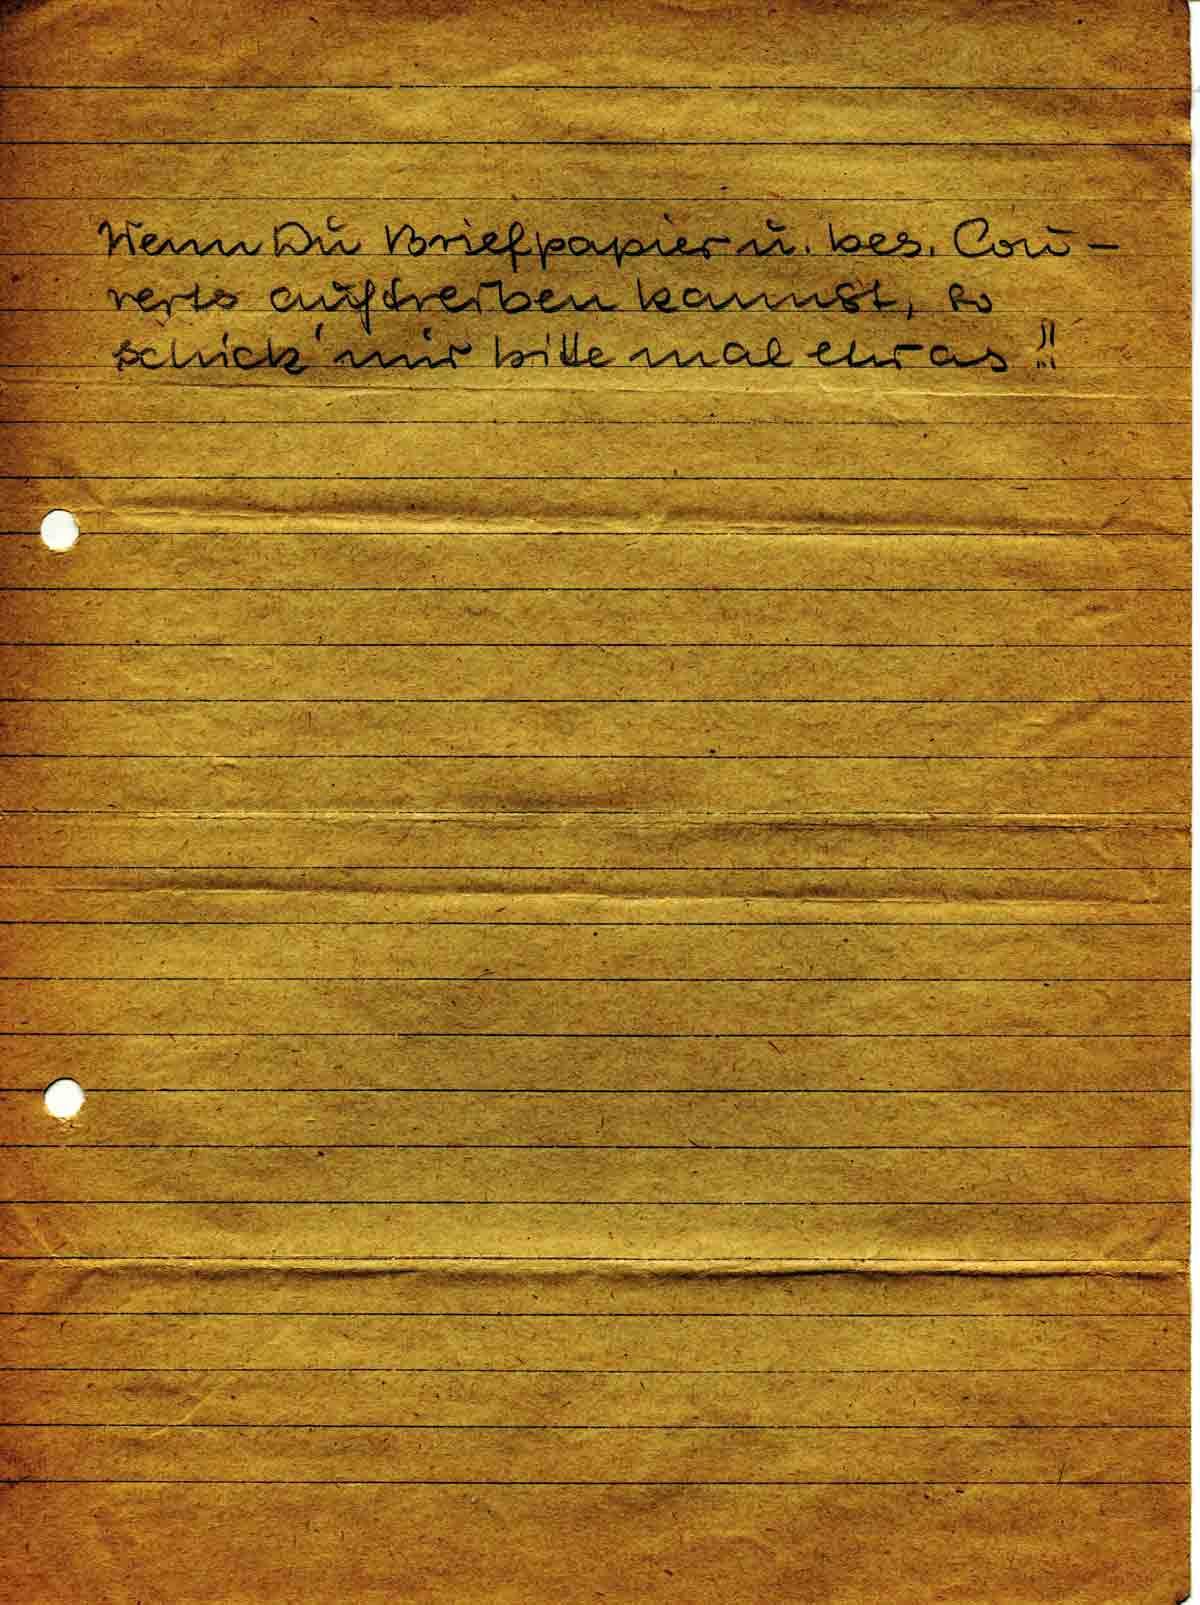 Wenn Du Briefpapier u. bes. Cou-
verts auftreiben kannst, so
schick' mir bitte mal etwas!!